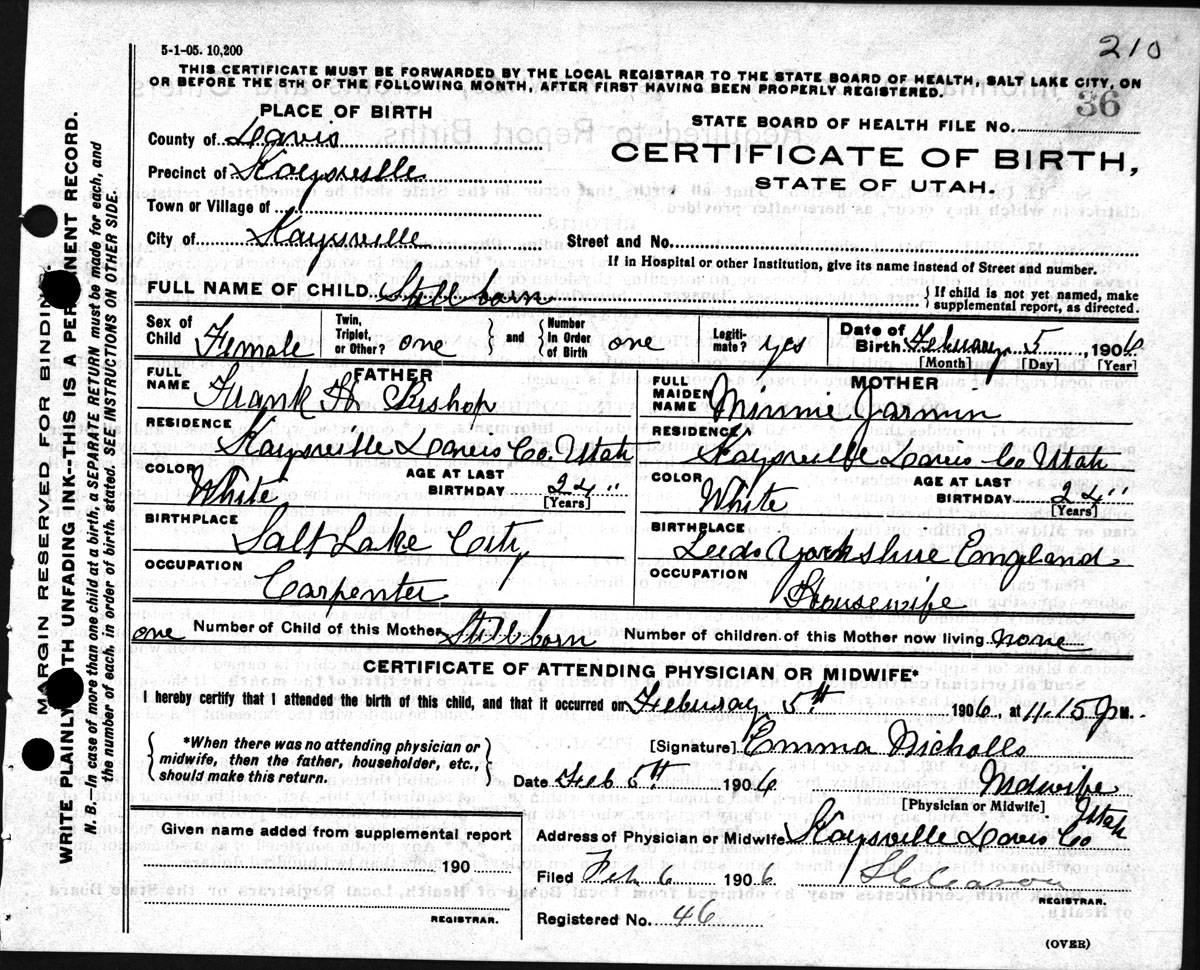 210
5-1-05. 10,200
THIS CERTIFICATE MUST BE FORWARDED BY THE LOCAL REGISTRAR TO THE STATE BOARD OF HEALTH, SALT LAKE CITY, ON
OR BEFORE THE 5TH OF THE FOLLOWING MONTH, AFTER FIRST HAVING BEEN PROPERLY REGISTERED.
36
PLACE OF BIRTH
STATE BOARD OF HEALTH FILE NO.
County of Davis
CERTIFICATE OF BIRTH,
Precinct of Kaysville
STATE OF UTAH.
Town or Village of
City of Kaysville Street and No.
If in Hospital or other Institution, give its name instead of Street and number.
FULL NAME OF CHILD Still born { If child is not yet named, make supplemental report, as directed.
Sex of Child Female Twin, Triplet, or Other? one } and { Number In Order of Birth one Legiti- mate? yes Date of Birth Febuary 5, 1906
[Month] [Day] [Year]
FATHER MOTHER
FULL NAME Frank H Bishop FULL MAIDEN NAME Minnie Jarmin
RESIDENCE Kaysville Davis Co. Utah RESIDENCE Kaysville Davis Co Utah
COLOR White AGE AT LAST BIRTHDAY 24 " [Years] COLOR White AGE AT LAST BIRTHDAY 24 " [Years]
BIRTHPLACE Salt Lake City BIRTHPLACE Leeds Yorkshire England
OCCUPATION Carpenter OCCUPATION Housewife
one Number of Child of this Mother Still born Number of children of this Mother now living none
CERTIFICATE OF ATTENDING PHYSICIAN OR MIDWIFE*
I hereby certify that I attended the birth of this child, and that it occurred on Febuary 5th 1906, at 11.15 P M.
{ *When there was no attending physician or midwife, then the father, householder, etc., should make this return. }
[Signature] Emma Nicholls
Date Feb 5th 1906 Midwife
[Physician or Midwife]
Given name added from supplemental report
190
REGISTRAR.
Address of Physician or Midwife Kaysville Davis Co Utah
Filed Feb 6 1906
REGISTRAR.
Registered No. 46
(OVER)
MARGIN RESERVED FOR BINDING.
WRITE PLAINLY WITH UNFADING INK--THIS IS A PERMANENT RECORD.
N. B.--In case of more than one child at a birth, a SEPARATE RETURN must be made for each, and
the number of each, in order of birth, stated. SEE INSTRUCTIONS ON OTHER SIDE.